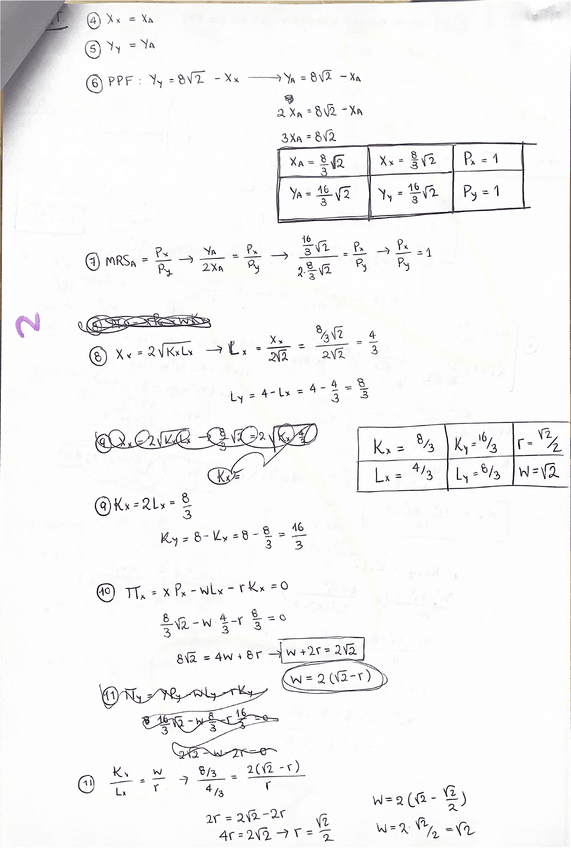 ④ Xx = XA
⑤ Yy = YA
⑥ PPF : Yy = 8√2 - Xx → YA = 8√2 - XA
2XA = 8√2 - XA
3XA = 8√2
XA = 8/3 √2 | Xx = 8/3 √2 | Px = 1
YA = 16/3 √2 | Yy = 16/3 √2 | Py = 1
⑦ MRSA = Px/Py → YA/2XA = Px/Py → (16/3 √2)/(2·8/3 √2) = Px/Py → Px/Py = 1
2
⑧ Xx = 2√KxLx → Lx = Xx/2√2 = (8/3 √2)/2√2 = 4/3
Ly = 4 - Lx = 4 - 4/3 = 8/3
⑨ Xx = 2√KxLx → 8/3 √2 = 2√Kx 4/3
Kx =
Kx = 8/3 | Ky = 16/3 | r = √2/2
Lx = 4/3 | Ly = 8/3 | W = √2
⑨ Kx = 2Lx = 8/3
Ky = 8 - Kx = 8 - 8/3 = 16/3
⑩ Πx = xPx - wLx - rKx = 0
8/3 √2 - w·4/3 - r 8/3 = 0
8√2 = 4w + 8r → w + 2r = 2√2
W = 2(√2 - r)
⑪ Πy = YPy - wLy - rKy
16/3 √2 - w 8/3 - r 16/3 = 0
2√2 - w - 2r = 0
⑪ Kx/Lx = w/r → (8/3)/(4/3) = 2(√2 - r)/r
2r = 2√2 - 2r
4r = 2√2 → r = √2/2
W = 2(√2 - √2/2)
W = 2·√2/2 = √2